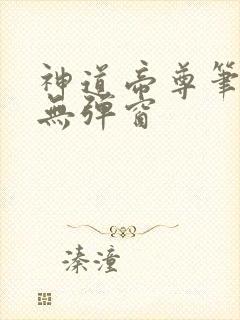 神道帝尊筆
無彈窗
溱潼